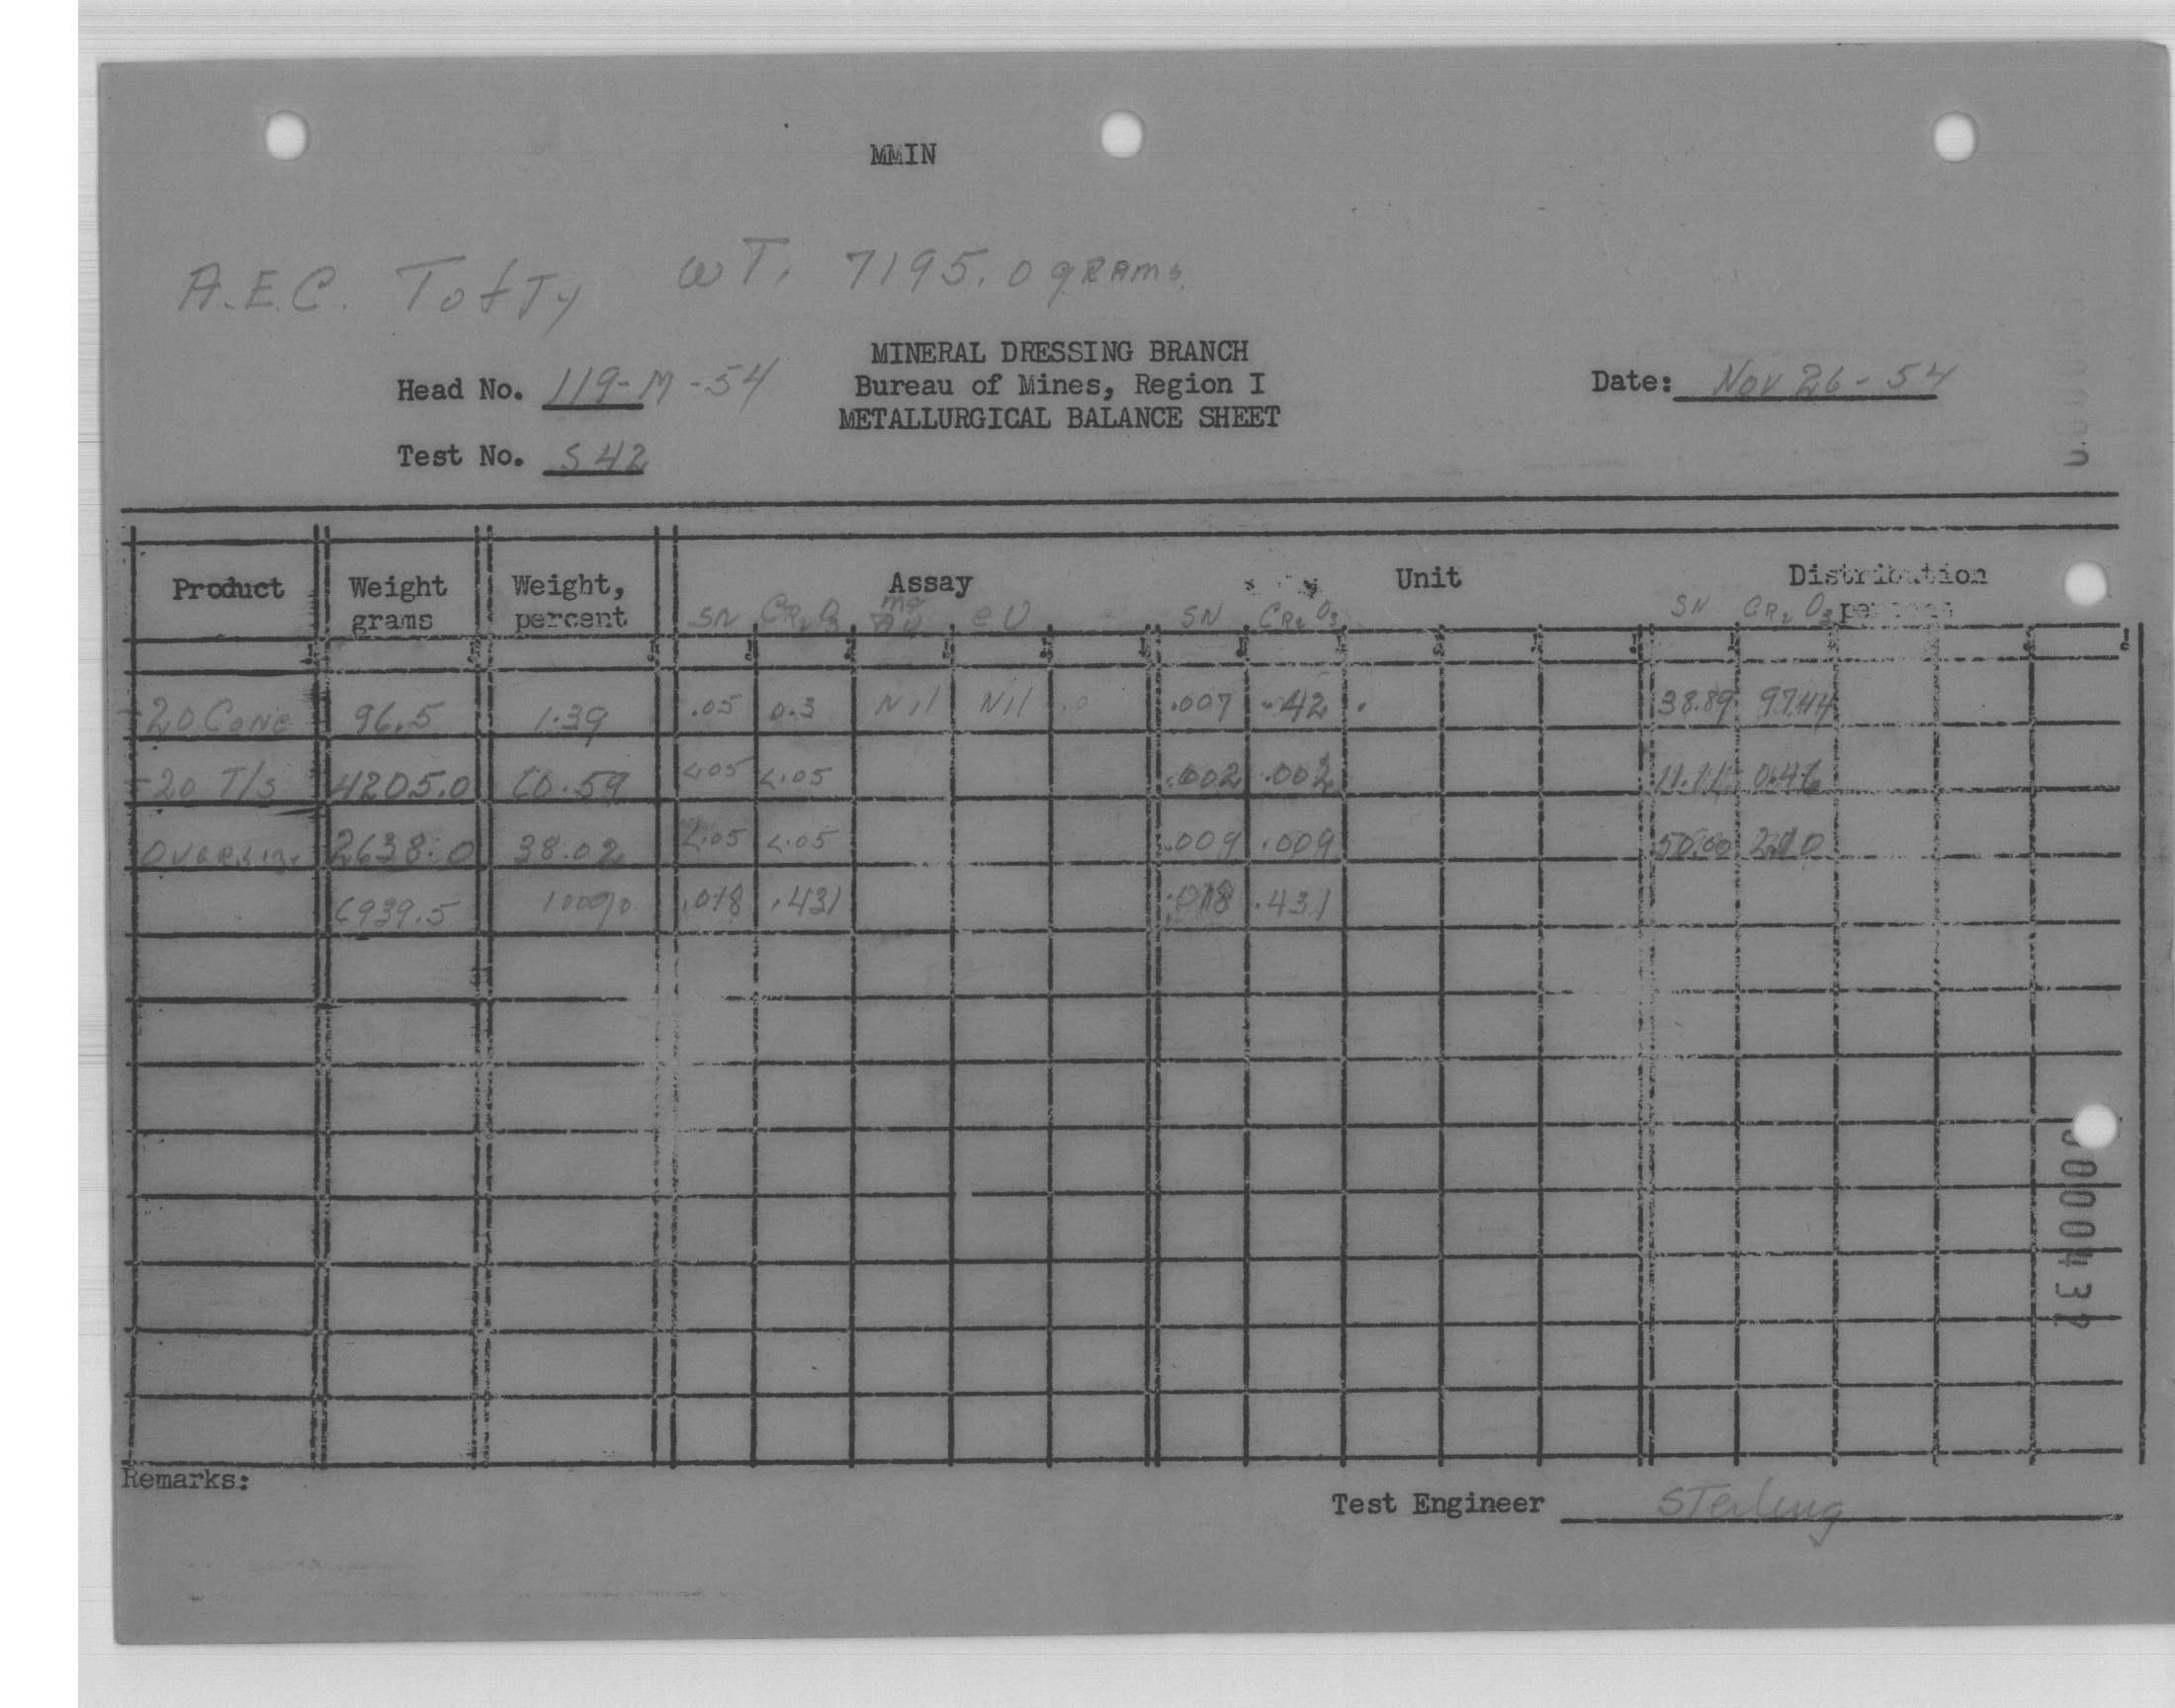 MMIN
A.E.C. Tofty WT. 7195.0 grams.
MINERAL DRESSING BRANCH
Head No. 119-M-54 Bureau of Mines, Region I Date: Nov 26-54
METALLURGICAL BALANCE SHEET
Test No. S42
Product Weight grams Weight, percent Assay Unit Distribution percent
SN CR2O3 mg Au eU SN CR2O3 SN CR2O3
-20 Conc 96.5 1.39 .05 0.3 Nil Nil .007 .42 38.89 97.44
-20 T/s 4205.0 60.59 <.05 <.05 .002 .002 11.11 0.46
Oversize 2638.0 38.02 <.05 <.05 .009 .009 50.00 2.10
6939.5 100.00 .018 .431 .018 .431
Remarks:
Test Engineer Sterling